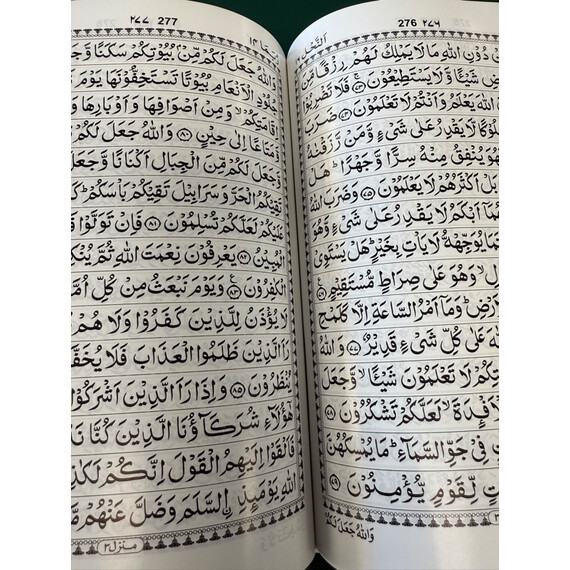 276 ٢٧٦
اَلنَّحْل
دُوْنِ اللّٰهِ مَا لَا يَمْلِكُ لَهُمْ رِزْقًا مِّنَ
شَيْـًٔا وَّلَا يَسْتَطِيْعُوْنَ ۚ﴿٧٣﴾ فَلَا تَضْرِبُوْا
اللّٰهَ يَعْلَمُ وَاَنْتُمْ لَا تَعْلَمُوْنَ ﴿٧٤﴾ ضَرَبَ
لَّا يَقْدِرُ عَلٰى شَىْءٍ وَّمَنْ رَّزَقْنٰهُ
فَهُوَ يُنْفِقُ مِنْهُ سِرًّا وَّجَهْرًا ؕ هَلْ
بَلْ اَكْثَرُهُمْ لَا يَعْلَمُوْنَ ﴿٧٥﴾ وَضَرَبَ اللّٰهُ
اَبْكَمُ لَا يَقْدِرُ عَلٰى شَىْءٍ وَّهُوَ
يُوَجِّهْهُّ لَا يَاْتِ بِخَيْرٍ ؕ هَلْ يَسْتَوِىْ
وَهُوَ عَلٰى صِرَاطٍ مُّسْتَقِيْمٍ ﴿٧٦﴾
وَمَاۤ اَمْرُ السَّاعَةِ اِلَّا كَلَمْحِ
عَلٰى كُلِّ شَىْءٍ قَدِيْرٌ ﴿٧٧﴾ وَاللّٰهُ
لَا تَعْلَمُوْنَ شَيْـًٔا ۙ وَّجَعَلَ
لَعَلَّكُمْ تَشْكُرُوْنَ ﴿٧٨﴾
فِىْ جَوِّ السَّمَآءِ ؕ مَا يُمْسِكُهُنَّ
لِّقَوْمٍ يُّؤْمِنُوْنَ ﴿٧٩﴾
وَاللّٰهُ جَعَلَ لَكُمْ
٢٧٧ 277
وَاللّٰهُ جَعَلَ لَكُمْ مِّنْۢ بُيُوْتِكُمْ سَكَنًا وَّجَعَلَ
جُلُوْدِ الْاَنْعَامِ بُيُوْتًا تَسْتَخِفُّوْنَهَا يَوْمَ
اِقَامَتِكُمْ ۙ وَمِنْ اَصْوَافِهَا وَاَوْبَارِهَا
وَّمَتَاعًا اِلٰى حِيْنٍ ﴿٨٠﴾ وَاللّٰهُ جَعَلَ لَكُمْ
وَّجَعَلَ لَكُمْ مِّنَ الْجِبَالِ اَكْنَانًا وَّجَعَلَ
تَقِيْكُمُ الْحَرَّ وَسَرَابِيْلَ تَقِيْكُمْ بَاْسَكُمْ ؕ
عَلَيْكُمْ لَعَلَّكُمْ تُسْلِمُوْنَ ﴿٨١﴾ فَاِنْ تَوَلَّوْا
الْمُبِيْنُ ﴿٨٢﴾ يَعْرِفُوْنَ نِعْمَتَ اللّٰهِ ثُمَّ
الْكٰفِرُوْنَ ﴿٨٣﴾ وَيَوْمَ نَبْعَثُ مِنْ كُلِّ
لَا يُؤْذَنُ لِلَّذِيْنَ كَفَرُوْا وَلَا هُمْ
رَاَ الَّذِيْنَ ظَلَمُوا الْعَذَابَ فَلَا
يُنْظَرُوْنَ ﴿٨٥﴾ وَاِذَا رَاَ الَّذِيْنَ اَشْرَكُوْا
هٰۤؤُلَآءِ شُرَكَآؤُنَا الَّذِيْنَ كُنَّا
فَاَلْقَوْا اِلَيْهِمُ الْقَوْلَ اِنَّكُمْ
اللّٰهِ يَوْمَئِذِ ۨالسَّلَمَ وَضَلَّ عَنْهُمْ
منزل ٣